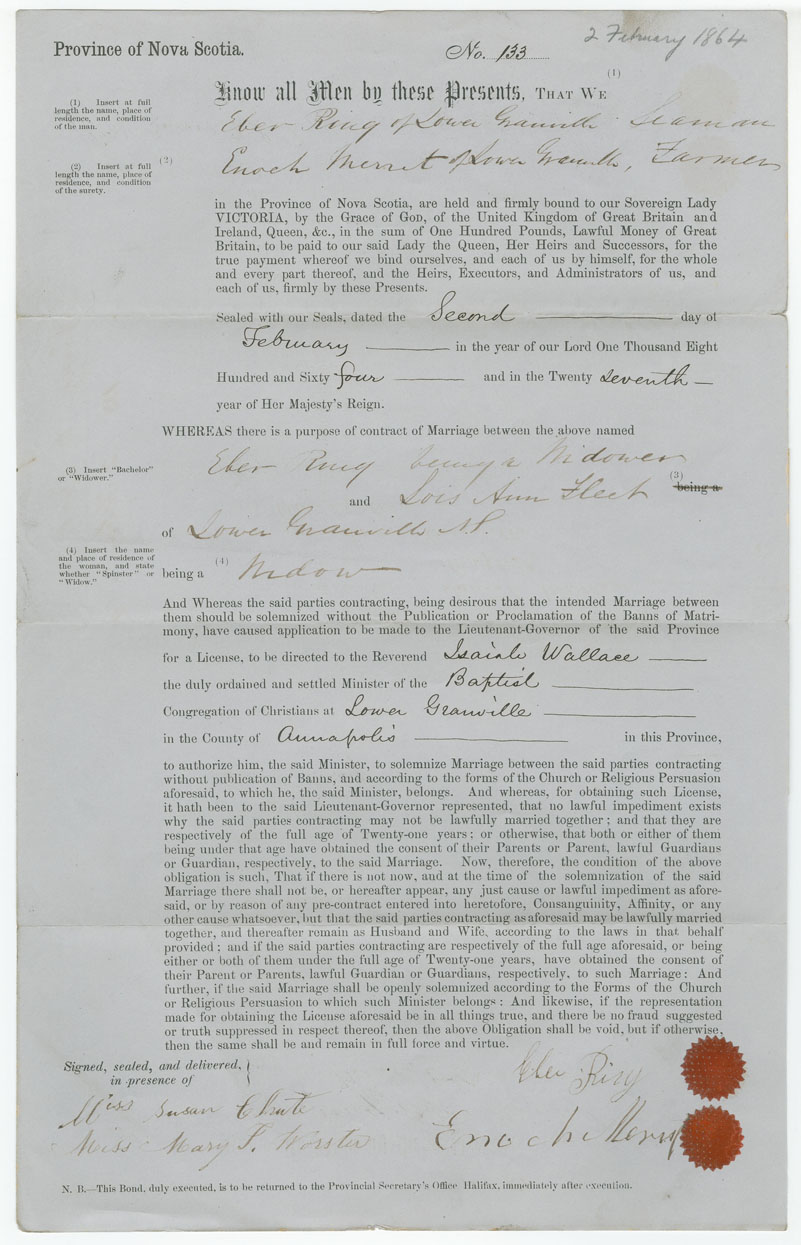 2 February 1864
Province of Nova Scotia.
No. 133
Know all Men by these Presents, THAT WE (1)
(1) Insert at full
length the name, place of
residence, and condition
of the man.
Eber Ring of Lower Granville Seaman
(2) Insert at full
length the name, place of
residence, and condition
of the surety.
(2)
Enoch Merret of Lower Granville, Farmer
in the Province of Nova Scotia, are held and firmly bound to our Sovereign Lady
VICTORIA, by the Grace of GOD, of the United Kingdom of Great Britain and
Ireland, Queen, &c., in the sum of One Hundred Pounds, Lawful Money of Great
Britain, to be paid to our said Lady the Queen, Her Heirs and Successors, for the
true payment whereof we bind ourselves, and each of us by himself, for the whole
and every part thereof, and the Heirs, Executors, and Administrators of us, and
each of us, firmly by these Presents.
Sealed with our Seals, dated the Second day of
February in the year of our Lord One Thousand Eight
Hundred and Sixty four and in the Twenty seventh
year of Her Majesty's Reign.
WHEREAS there is a purpose of contract of Marriage between the above named
(3) Insert "Bachelor"
or "Widower."
Eber Ring being a Widower
(3) being a
and Lois Ann Fleet
of Lower Granville N.S.
(4) Insert the name
and place of residence of
the woman, and state
whether "Spinster" or
"Widow."
being a (4) Widow
And Whereas the said parties contracting, being desirous that the intended Marriage between
them should be solemnized without the Publication or Proclamation of the Banns of Matri-
mony, have caused application to be made to the Lieutenant-Governor of the said Province
for a License, to be directed to the Reverend Isaiah Wallace
the duly ordained and settled Minister of the Baptist
Congregation of Christians at Lower Granville
in the County of Annapolis in this Province,
to authorize him, the said Minister, to solemnize Marriage between the said parties contracting
without publication of Banns, and according to the forms of the Church or Religious Persuasion
aforesaid, to which he, the said Minister, belongs. And whereas, for obtaining such License,
it hath been to the said Lieutenant-Governor represented, that no lawful impediment exists
why the said parties contracting may not be lawfully married together; and that they are
respectively of the full age of Twenty-one years; or otherwise, that both or either of them
being under that age have obtained the consent of their Parents or Parent, lawful Guardians
or Guardian, respectively, to the said Marriage. Now, therefore, the condition of the above
obligation is such, That if there is not now, and at the time of the solemnization of the said
Marriage there shall not be, or hereafter appear, any just cause or lawful impediment as afore-
said, or by reason of any pre-contract entered into heretofore, Consanguinity, Affinity, or any
other cause whatsoever, but that the said parties contracting as aforesaid may be lawfully married
together, and thereafter remain as Husband and Wife, according to the laws in that behalf
provided; and if the said parties contracting are respectively of the full age aforesaid, or being
either or both of them under the full age of Twenty-one years, have obtained the consent of
their Parent or Parents, lawful Guardian or Guardians, respectively, to such Marriage: And
further, if the said Marriage shall be openly solemnized according to the Forms of the Church
or Religious Persuasion to which such Minister belongs: And likewise, if the representation
made for obtaining the License aforesaid be in all things true, and there be no fraud suggested
or truth suppressed in respect thereof, then the above Obligation shall be void, but if otherwise,
then the same shall be and remain in full force and virtue.
Signed, sealed, and delivered,
in presence of
Eber Ring
Miss Susan Chute
Miss Mary S. Worster
Enoch
N. B.—This Bond, duly executed, is to be returned to the Provincial Secretary's Office Halifax, immediately after execution.